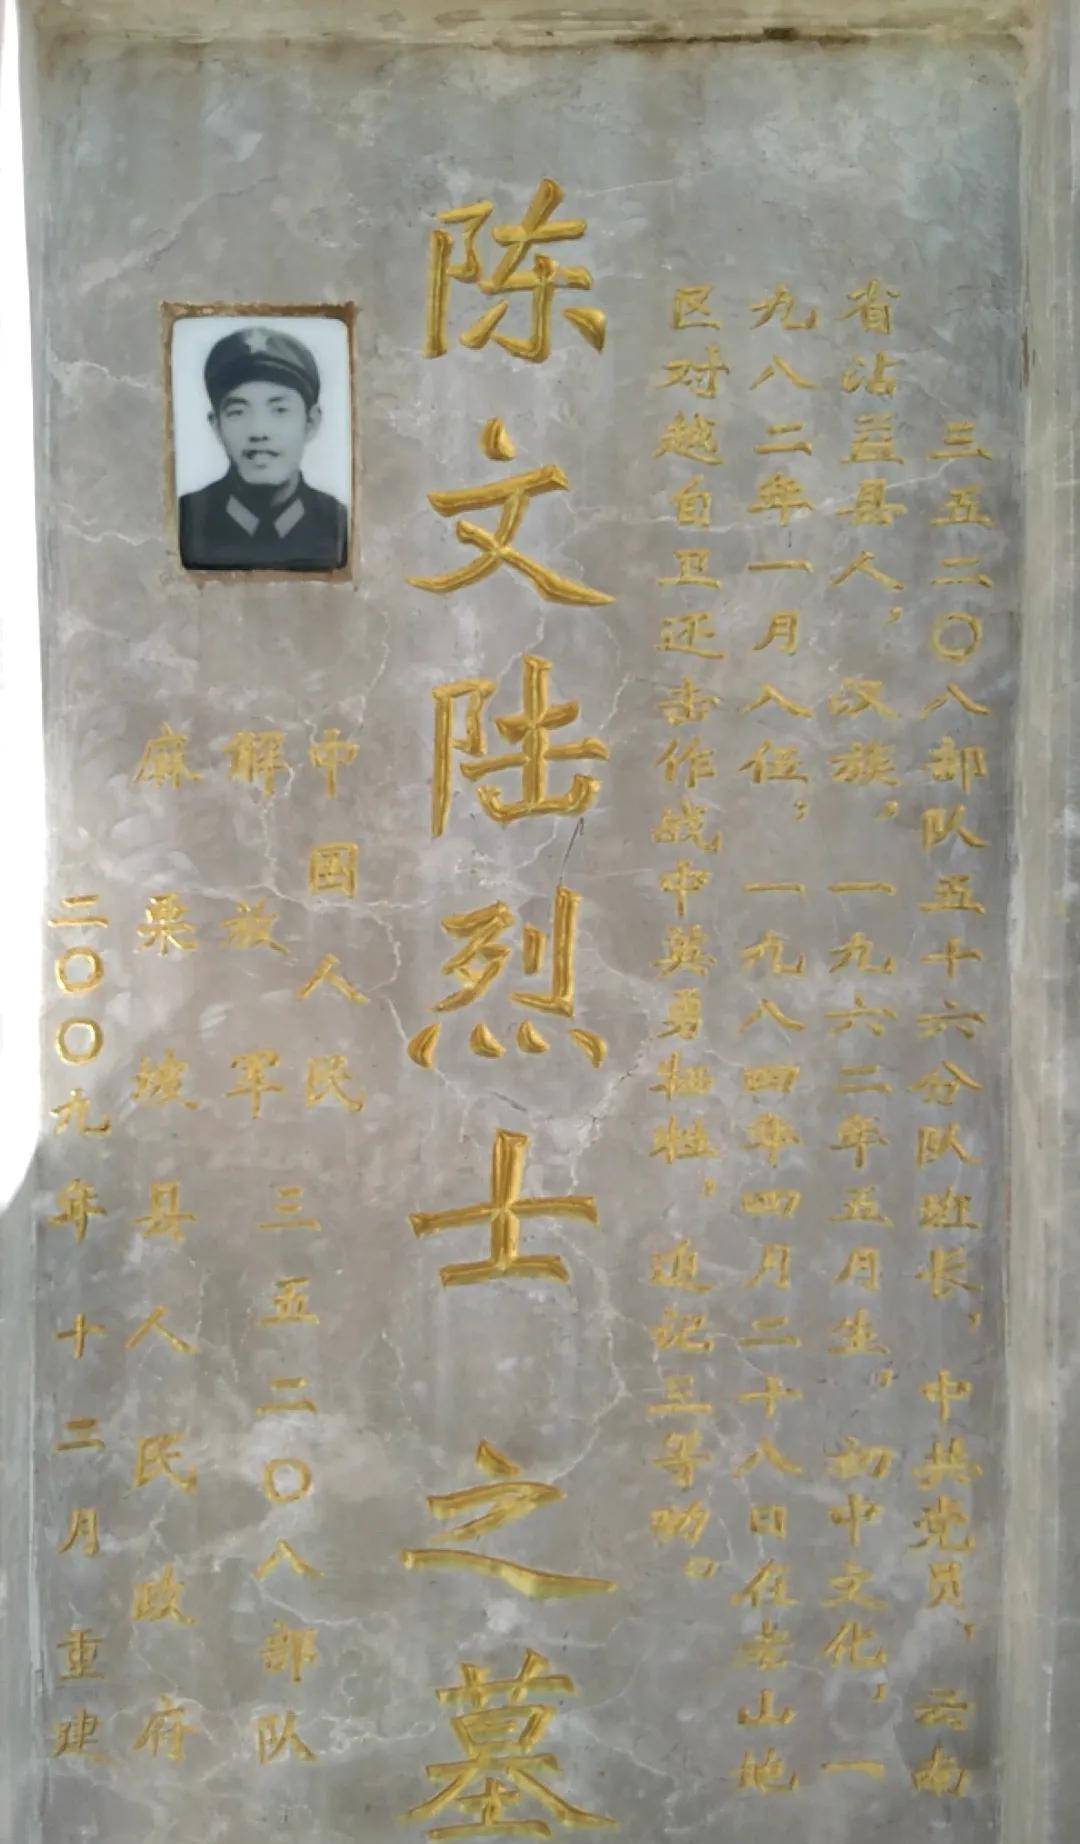 三五二〇八部队五十六分队班长，中共党员，云南
省沾益县人，汉族，一九六二年五月生，初中文化，一
九八二年一月入伍，一九八四年四月二十八日在老山地
区对越自卫还击作战中英勇牺牲，追记三等功。
陈文陆烈士之墓
中国人民
解放军
三五二〇八部队
麻栗坡县人民政府
二〇〇九年十二月重建